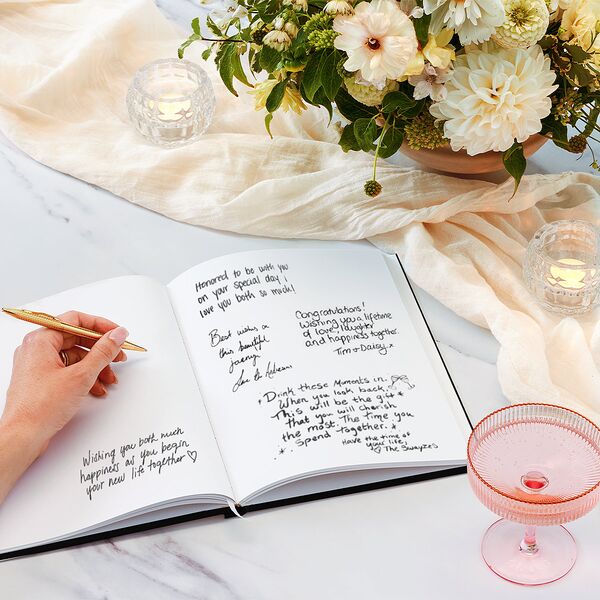 Wishing you both much
happiness as you begin
your new life together ♡
Honored to be with you
on your special day i
love you both so much!
Best wishes on
this beautiful
Congratulations!
Wishing you a lifetime
of love, laughter
and happiness together.
Tim + Daisy x
Drink these moments in.
When you look back,
This will be the gift
that you will cherish
the most. The time you
Spend together.
Have the time of
your life,
♡ The Swayzes